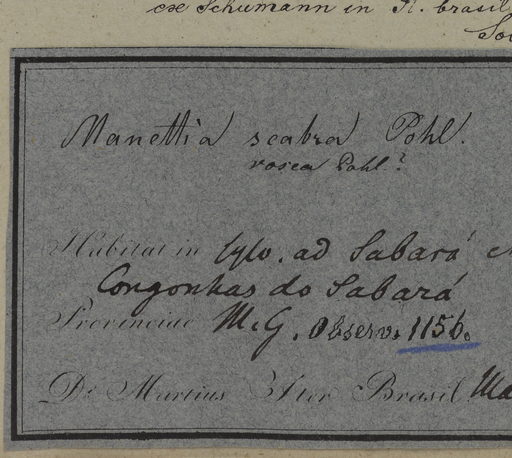 ex Schumann in Fl. brasil
Manettia scabra Pohl.
rosea Pohl?
Habitat in sylv. ad Sabará
Congonhas do Sabará
Provinciae M. G. Observ. 1156.
Dr. Martius Iter Brasil. Ma